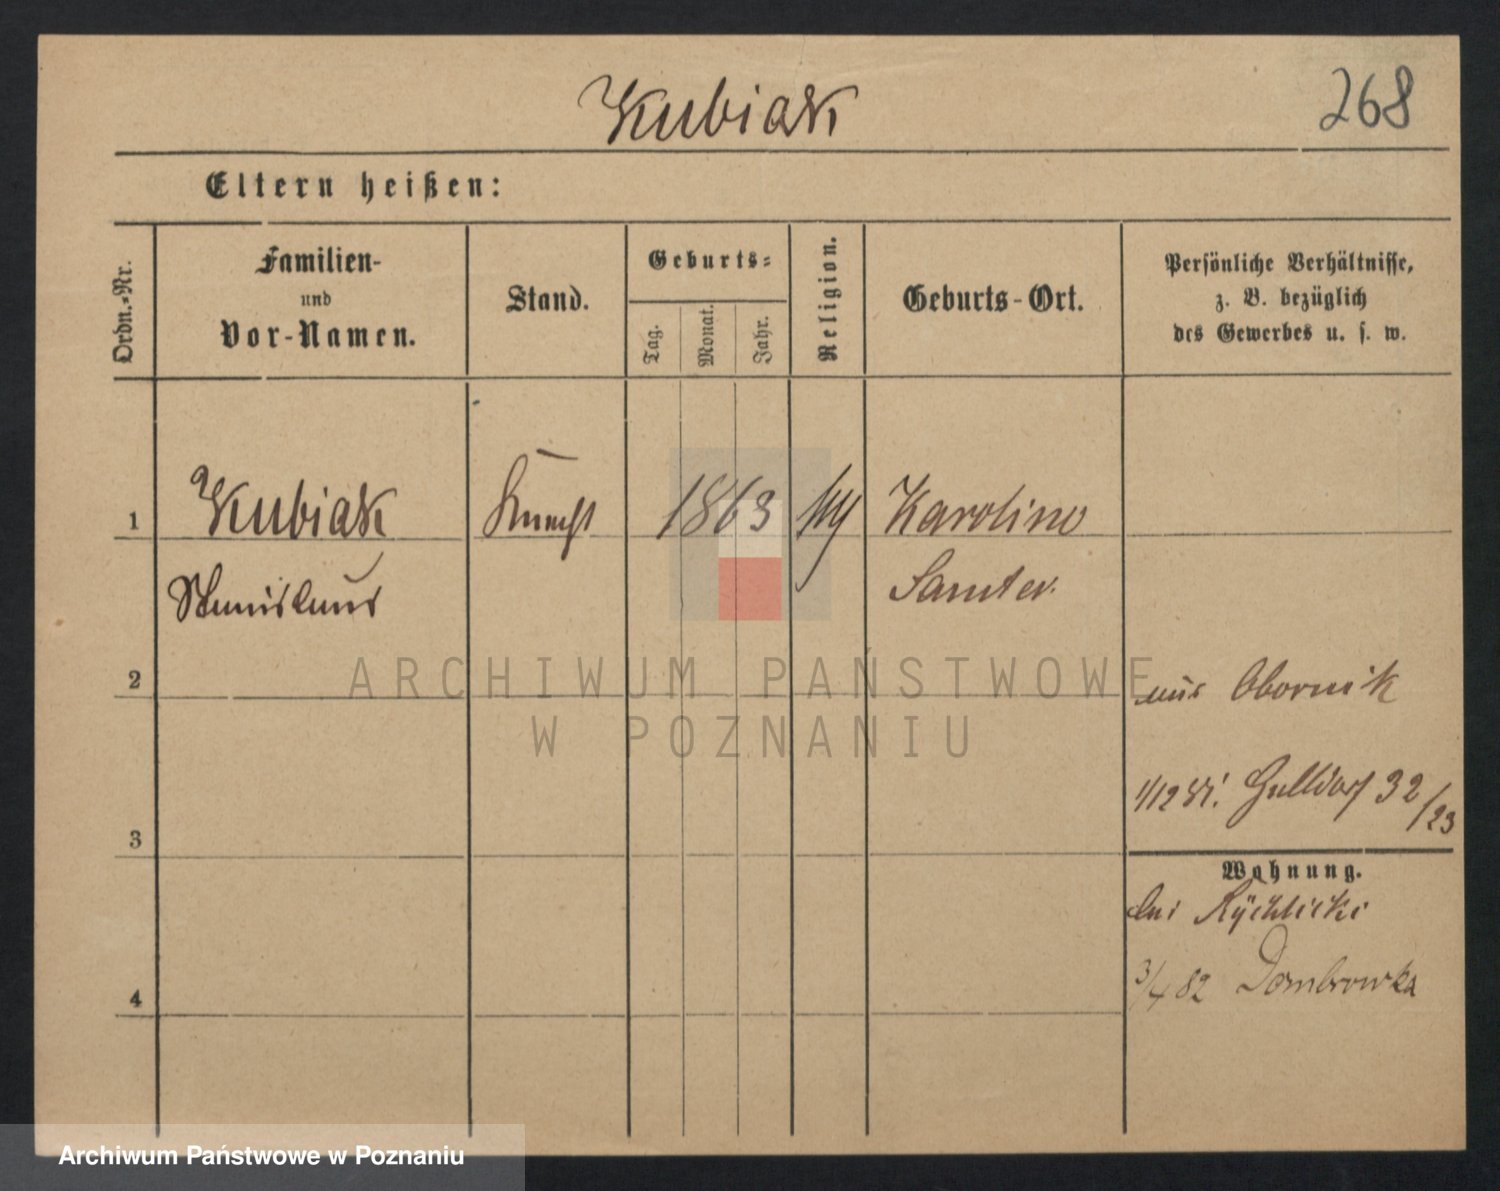 Kubiak
268
Eltern heißen:
Ordn.-Nr.
Familien-
und
Vor-Namen.
Stand.
Geburts-
Tag.
Monat.
Jahr.
Religion.
Geburts-Ort.
Persönliche Verhältnisse,
z. B. bezüglich
des Gewerbes u. s. w.
1
Kubiak
Knecht
1863
Karolino
Stanislaus
Samter.
2
aus Obornik
1/12 81. 32/23
3
Wohnung.
bei Rychlicki
4
3/4 82 Dombrowka
ARCHIWUM PAŃSTWOWE
W POZNANIU
Archiwum Państwowe w Poznaniu